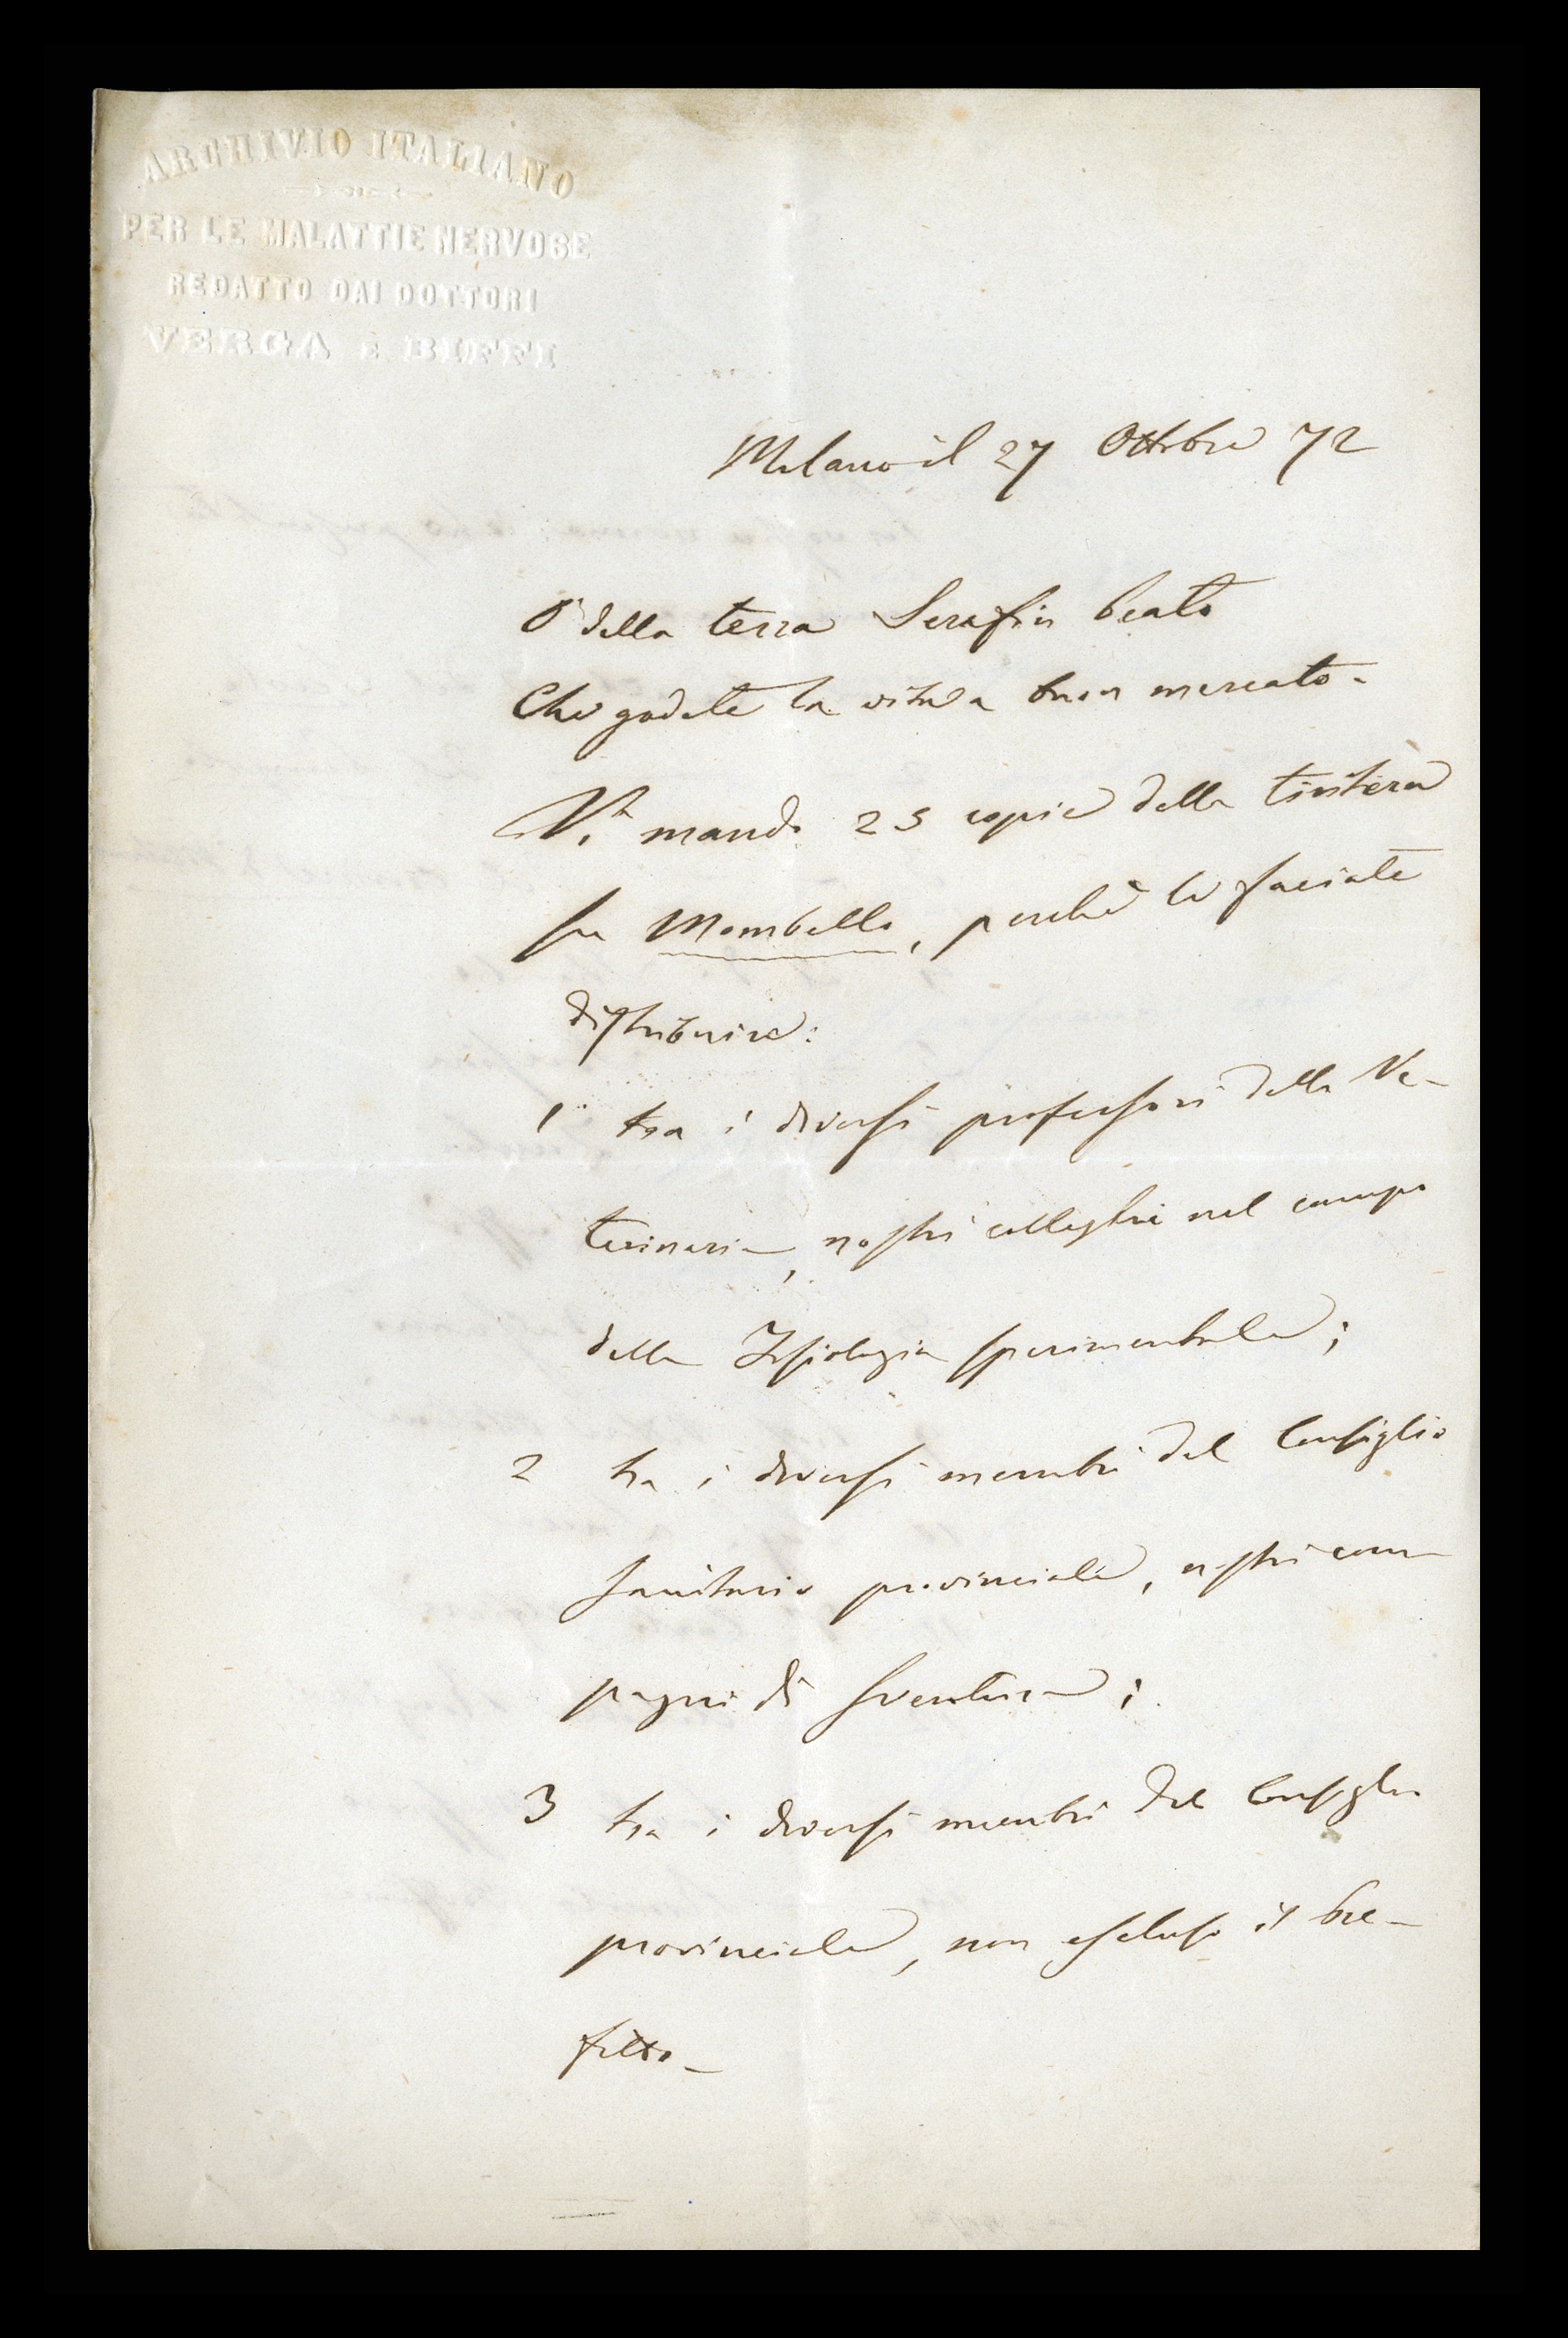 ARCHIVIO ITALIANO
PER LE MALATTIE NERVOSE
REDATTO DAI DOTTORI
VERGA E BIFFI
Milano il 27 Ottobre 72
O della terra Serafin beato
Che godete la vita a buon mercato.
Vi mando 25 copie della
su Mombello, perchè le facciate
distribuire:
1° tra i diversi professori della Ve-
terinaria, nostri colleghi nel campo
della Fisiologia sperimentale;
2 tra i diversi membri del Consiglio
sanitario provinciale, nostri com-
pagni di sventura;
3 tra i diversi membri del Consiglio
provinciale, non escluso il Pre-
fetto_